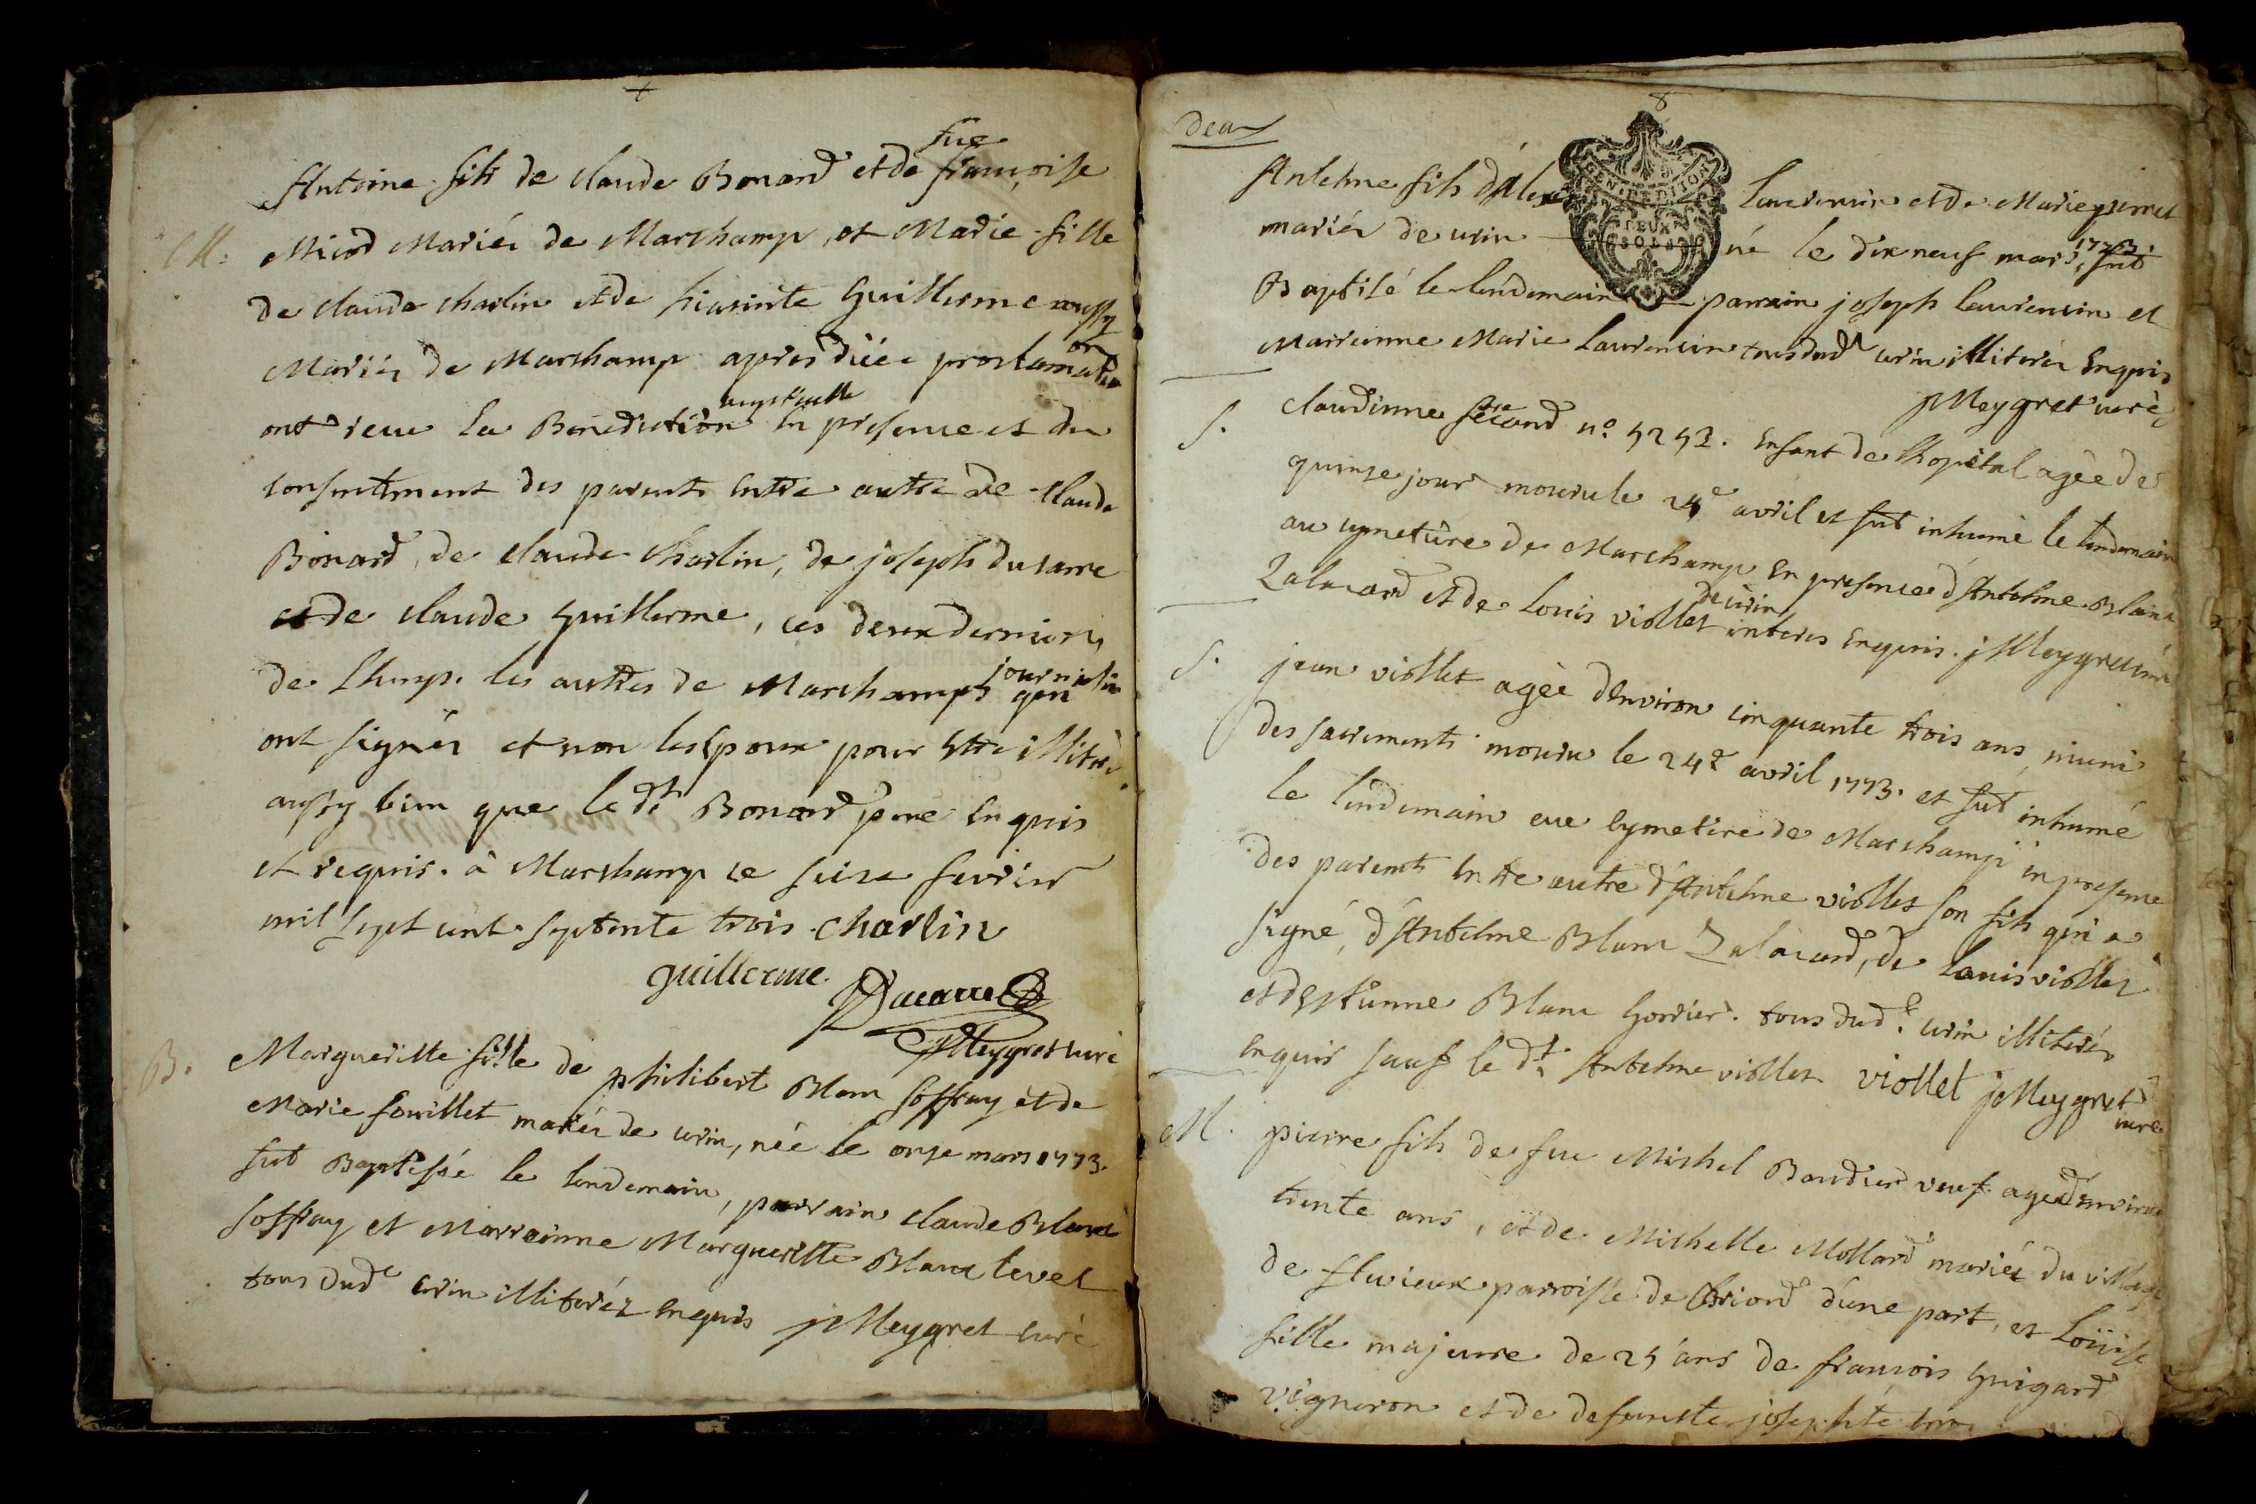 Antoine fils de claude Bonard et de feue françoise
M. Micod Mariés de Marchamp, et Marie fille
de claude charlin et de hiacinte Guillerme aussy
Mariés de Marchamp apres diées proclamation
ont recue La Benediction nuptialle En presence et du
consentment des parents Entre autre de Claude
Bonard, de claude Charlin, de joseph ducarre
et de claude Guillerme, ces deux derniers
de Lhuys. les autres de Marchamp journalier qui
ont signés et non les Epoux pour Etre illiterés
aussy bien que le dt Bonard pere Enquis
et requis. à Marchamp ce seize fevrier
mil sept cent septente trois. charlin
guillerme Ducarre
jMeygret curé
B. Margueritte fille de philibert Blanc soffray et de
Marie fouillet mariés de cerin, née le onze mars 1773.
fut Baptisée le lendemain, parrain claude Blanc
soffray et Marrainne Margueritte Blanc level
tous dud. cerin illiterés Enquis jMeygret curé
8
deux
GEN. DEUX SOLS
Antelme fils d'Alexis Laurencin et de Marie perret
mariés de cerin né le dix neuf mars 1773. fut
Baptisé le lendemain parrain joseph Laurencin et
Marrienne Marie Laurencin tous dud. cerin illiterés Enquis
jMeygret curé
S. claudinne second no. 5252. Enfant de l'hopital agèe de
quinze jour mouru le 24e avril et fut inhumé le lendemain
au cymetiere de Marchamp En presence d'Antelme Blanc
Lalacard et de Louis viollet de cerin Enquis. jMeygret curé
S. jean viollet agèe d'Environ cinquante trois ans, muni
des sacrements mouru le 24e avril 1773. et fut inhumé
le lendemain au cymetiere de Marchamp in presence
des parents Entre autre d'Antelme viollet son fils qui a
signé, d'Antelme Blanc Lalacard, de Louis viollet
et d'Etiunne Blanc Gorrier. tous dud. cerin illiterés
Enquis sauf le dt. Antelme viollet viollet jMeygret
curé
M. pierre fils de feu Michel Baudier veuf agé d'Environ
trente ans, et de Michelle Mollard mariés du village
de fluvieux parroisse de Briord d'une part, et Loüise
fille majeure de 25 ans de françois Guigard
vigneron et de defuncte josephte